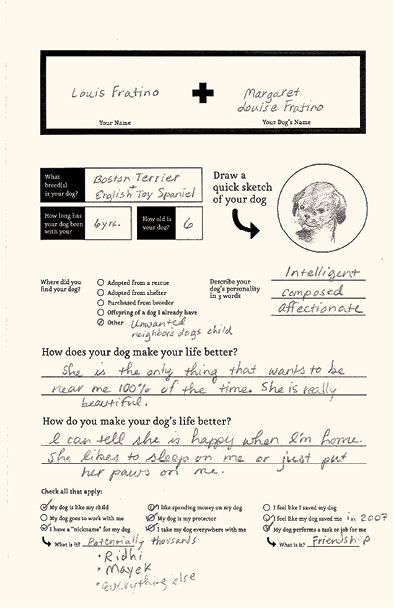 Louis Fratino
Your Name
Margaret
Louise Fratino
Your Dog's Name
What breed(s) is your dog?
Boston Terrier
+
English Toy Spaniel
How long has your dog been with you?
6 yrs.
How old is your dog?
6
Draw a
quick sketch
of your dog
Where did you find your dog?
Adopted from a rescue
Adopted from shelter
Purchased from breeder
Offspring of a dog I already have
Other Unwanted
neighbors dogs child
Describe your dog's personality in 3 words
Intelligent
composed
affectionate
How does your dog make your life better?
She is the only thing that wants to be
near me 100% of the time. She is really
beautiful.
How do you make your dog's life better?
I can tell she is happy when I'm home.
She likes to sleep on me or just put
her paws on me.
Check all that apply:
My dog is like my child
My dog goes to work with me
I have a "nickname" for my dog
What is it? Potentially thousands
• Ridhi
• Mayek
• everything else
I like spending money on my dog
My dog is my protector
I take my dog everywhere with me
I feel like I saved my dog
I feel like my dog saved me in 2007
My dog performs a task or job for me
What is it? Friendship